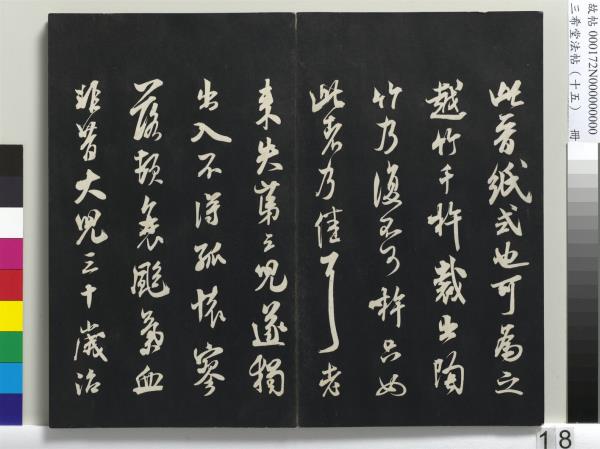 此晉紙式也可為之
越竹千杵裁出陶
竹乃復不可杵只如
此者乃佳耳老
來失第三兒遂獨
出入不得孤懷寥
落頓衰颯氣血
非昔大兒三十歲治
故帖 000172N000000000
三希堂法帖(十五) 冊
18